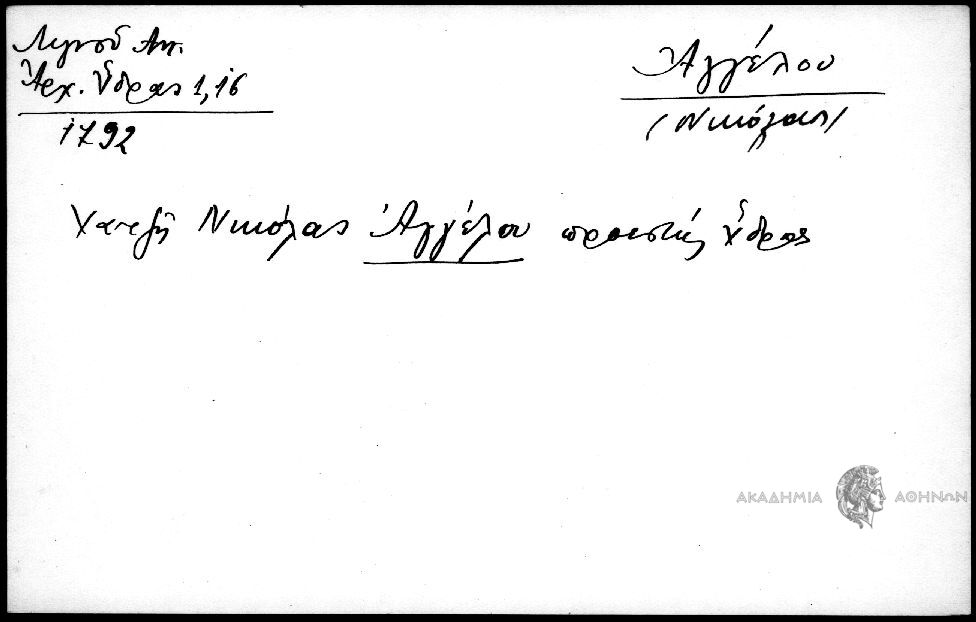 Λιγνοῦ Ἀν.
Ἀρχ. Ὕδρας 1, 16
1792
Ἀγγέλου
(Νικόλας)
Χατζῆ Νικόλας Ἀγγέλου προεστός Ὕδρας
ΑΚΑΔΗΜΙΑ ΑΘΗΝΩΝ